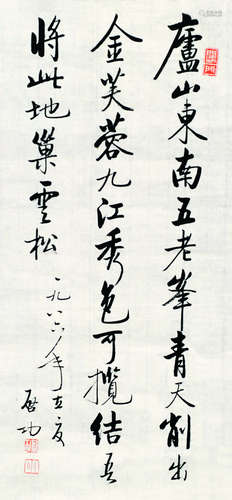 廬山東南五老峯青天削出
金芙蓉九江秀色可攬結吾
將此地巢雲松
一九八六年立夏
啟功